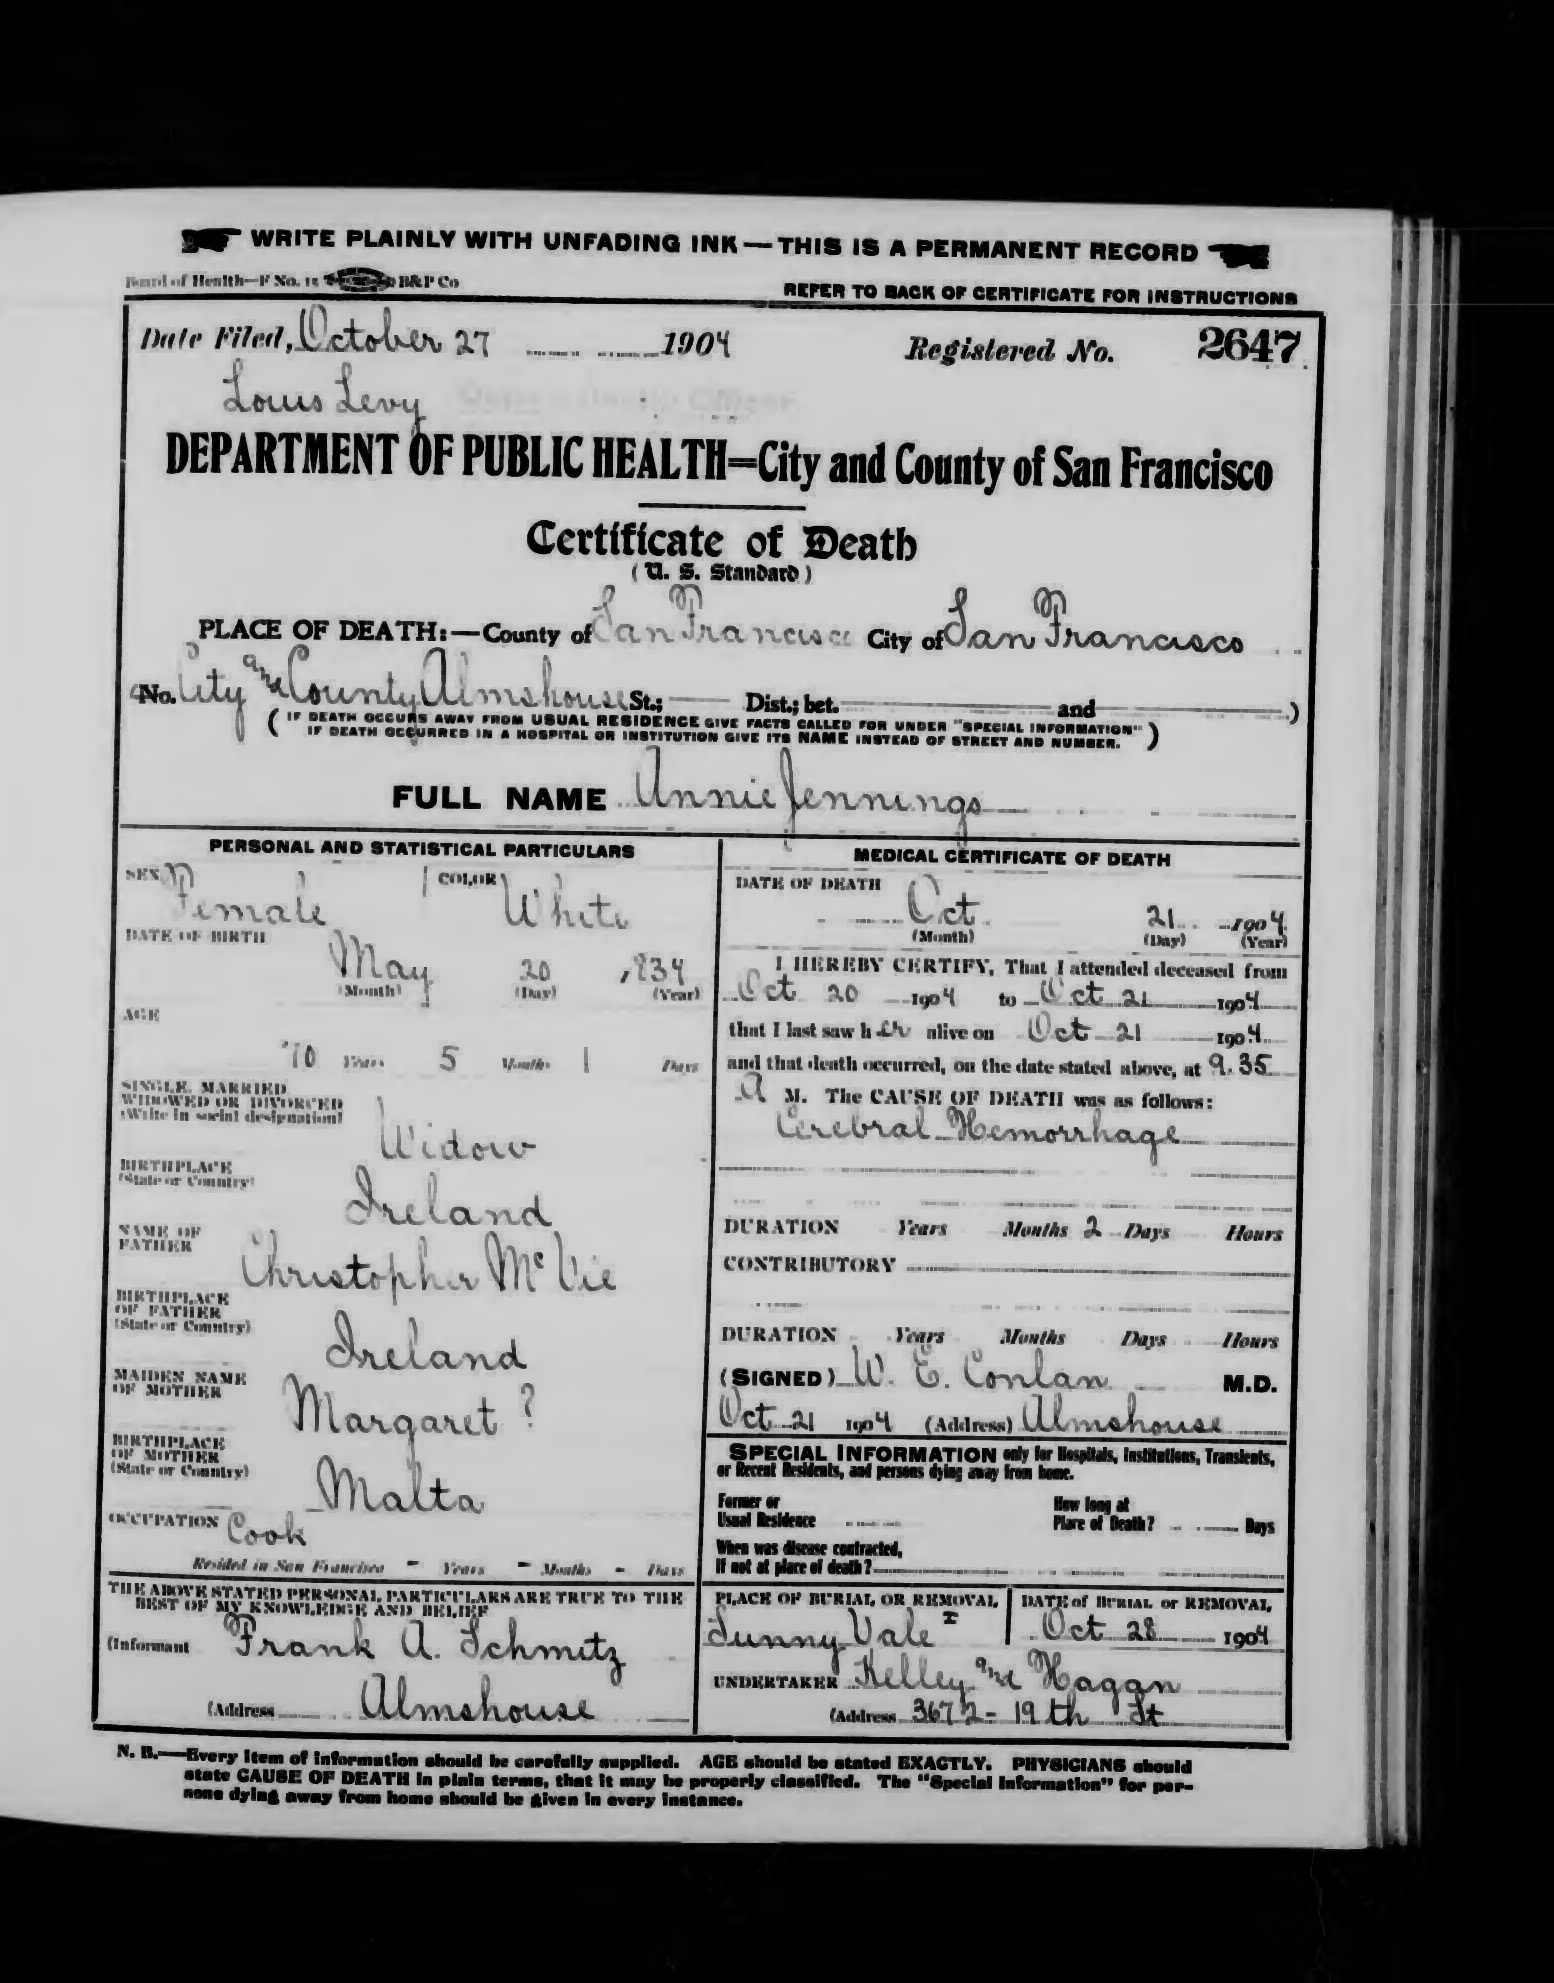 WRITE PLAINLY WITH UNFADING INK—THIS IS A PERMANENT RECORD
Board of Health—F No. 15 B&P Co
REFER TO BACK OF CERTIFICATE FOR INSTRUCTIONS
Date Filed, October 27 1904 Registered No. 2647
Louis Levy
DEPARTMENT OF PUBLIC HEALTH=City and County of San Francisco
Certificate of Death
(U. S. Standard)
PLACE OF DEATH:—County of San Francisco City of San Francisco
No. City and County Almshouse St.; Dist.; bet. and )
( IF DEATH OCCURS AWAY FROM USUAL RESIDENCE GIVE FACTS CALLED FOR UNDER "SPECIAL INFORMATION"
IF DEATH OCCURRED IN A HOSPITAL OR INSTITUTION GIVE ITS NAME INSTEAD OF STREET AND NUMBER. )
FULL NAME Annie Jennings
PERSONAL AND STATISTICAL PARTICULARS
SEX Female COLOR White
DATE OF BIRTH
May 20 , 834
(Month) (Day) (Year)
AGE
70 Years 5 Months 1 Days
SINGLE, MARRIED,
WIDOWED OR DIVORCED
(Write in social designation)
Widow
BIRTHPLACE
(State or Country)
Ireland
NAME OF
FATHER
Christopher McVie
BIRTHPLACE
OF FATHER
(State or Country)
Ireland
MAIDEN NAME
OF MOTHER
Margaret ?
BIRTHPLACE
OF MOTHER
(State or Country)
Malta
OCCUPATION Cook
Resided in San Francisco - Years - Months - Days
THE ABOVE STATED PERSONAL PARTICULARS ARE TRUE TO THE
BEST OF MY KNOWLEDGE AND BELIEF
(Informant Frank A. Schmitz
(Address Almshouse
MEDICAL CERTIFICATE OF DEATH
DATE OF DEATH
Oct 21 1904
(Month) (Day) (Year)
I HEREBY CERTIFY, That I attended deceased from
Oct 20 1904 to Oct 21 1904
that I last saw her alive on Oct 21 1904
and that death occurred, on the date stated above, at 9.35
A M. The CAUSE OF DEATH was as follows:
Cerebral Hemorrhage
DURATION Years Months 2 Days Hours
CONTRIBUTORY
DURATION Years Months Days Hours
(SIGNED) W. E. Conlan M.D.
Oct 21 1904 (Address) Almshouse
SPECIAL INFORMATION only for Hospitals, Institutions, Transients,
or Recent Residents, and persons dying away from home.
Former or
Usual Residence
How long at
Place of Death? Days
When was disease contracted,
If not at place of death?
PLACE OF BURIAL OR REMOVAL
Sunny Vale I
DATE of BURIAL or REMOVAL
Oct 28 1904
UNDERTAKER Kelley and Hagan
(Address 3672 - 19th St
N. B.—Every item of information should be carefully supplied. AGE should be stated EXACTLY. PHYSICIANS should
state CAUSE OF DEATH in plain terms, that it may be properly classified. The "Special Information" for per-
sons dying away from home should be given in every instance.